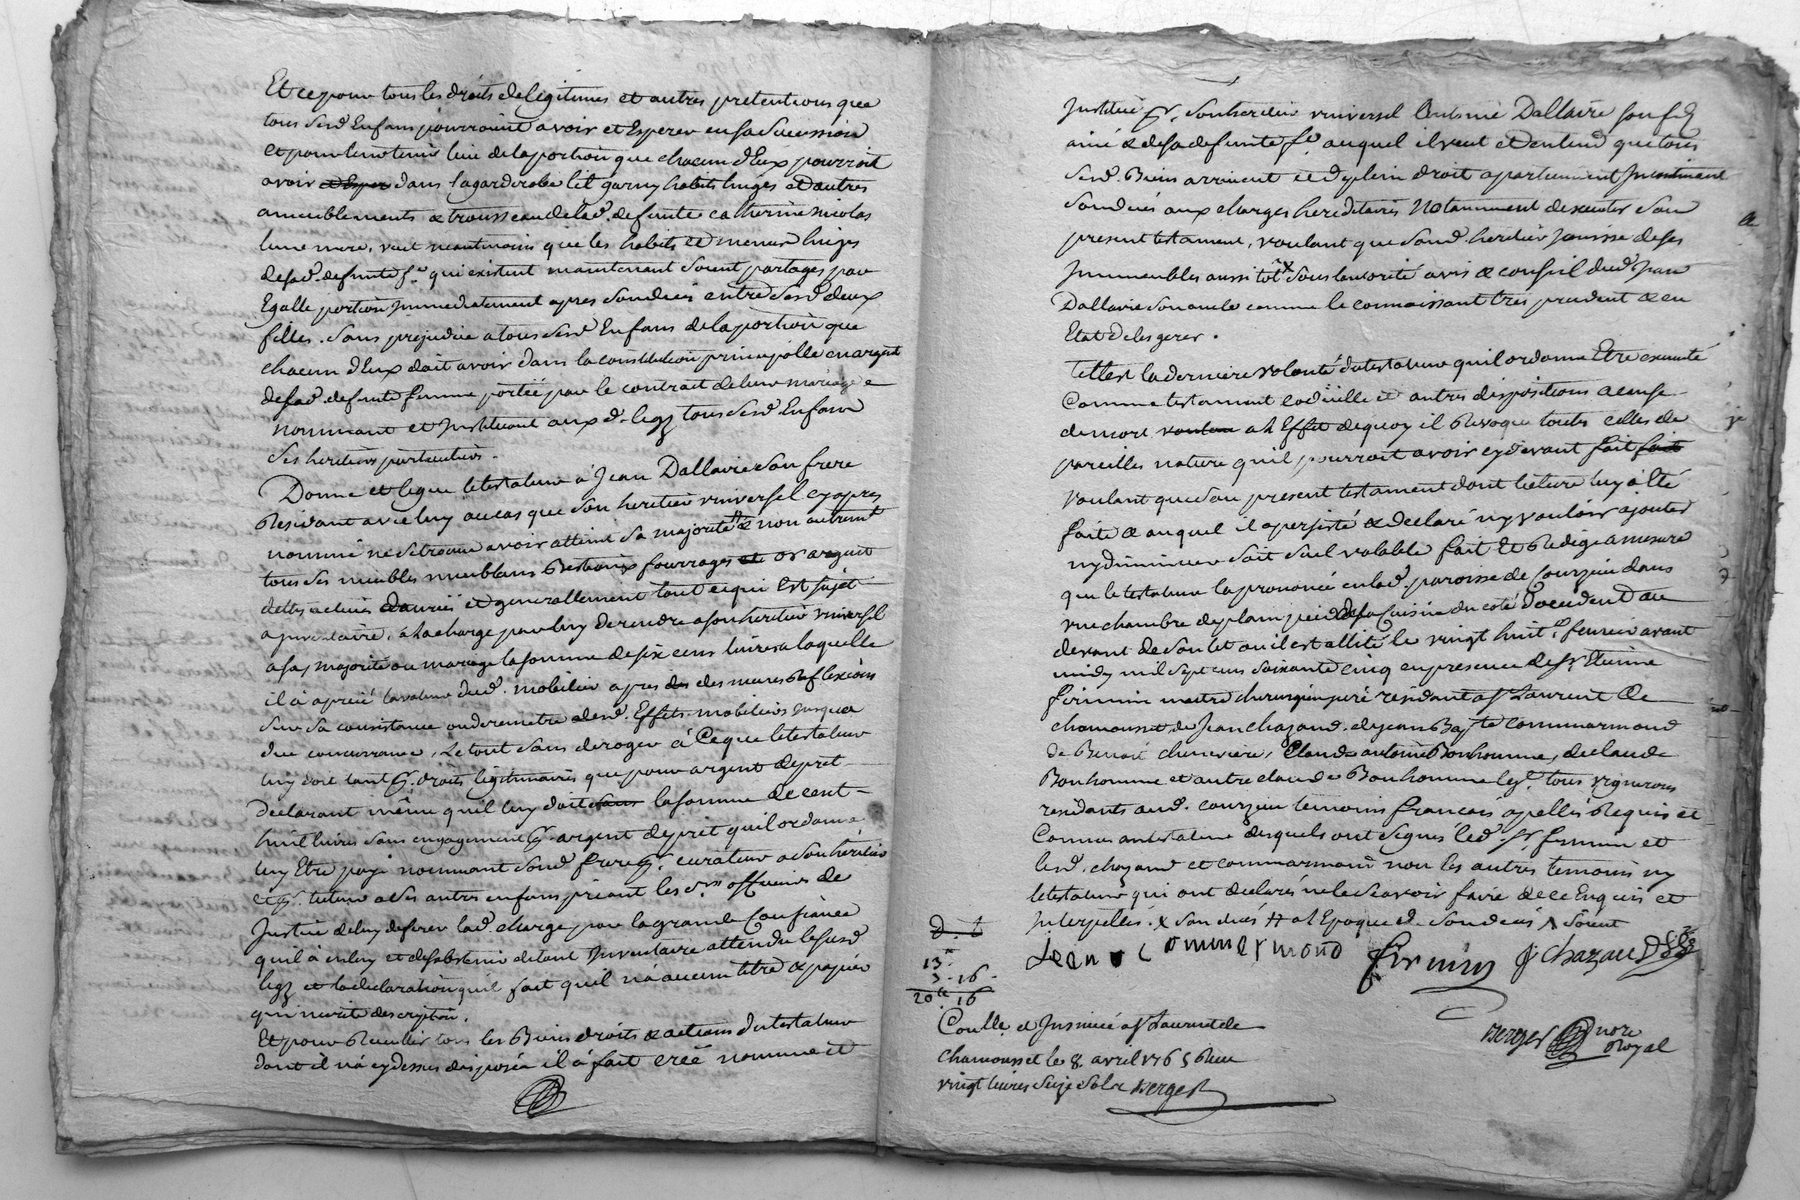 Et ce pour tous les droits de legitimes et autres pretentions que
tous sesd. Enfans pourroient avoir et Esperer en sa succession
et pour leur tenir lieu de la portion que chacun d'Eux pourroit
avoir et Esperer dans la garderobe lit garny habits linges et autres
ameublements & trousseau de lad. defunte catherine nicolas
leur mere, veut neantmoins que les habits et menus linges
de sad. defunte fe. qui existent maintenant soient partagés par
Egalle portion immediatement apres son deces entre sesd. deux
filles. sans prejudice a tous sesd. Enfans de la portion que
chacun d'Eux doit avoir dans la constitution principalle en argent
de sad. defunte femme portée par le contrat de leur mariage
nommant et Instituant aux d. legz tous sesd. Enfans
ses heritiers particuliers.
Donne et legue le testateur à Jean Dallaire son frere
Residant avec luy au cas que son heritier universel cy apres
nommé ne se trouve avoir atteint sa majorité # & non autrement
tous ses meubles meublans Bestiaux fourrages et or argent
dettes actives et generallement tout ce qui Est sujet
a inventaire, à la charge par luy de rendre a son heritier universel
a sa majorité ou mariage la somme de six cens livres a laquelle
il à aprecié la valeur dud. mobilier apres des des mures Reflexions
sur sa consistance ou de remettre desd. Effets mobiliers jusqua
due concurrance, Le tout sans deroger à Ce que le testateur
luy doit tant pr. droits legitimaires que pour argent de pret
Declarant même qu'il luy doit sans la somme de cent
huit livres sans engagement pr. argent de pret qu'il ordonne
luy Etre payé nommant sond. frere pr. curateur a son heritier
et pr. tuteur a ses autres enfans priant les srs. officiers de
Justice de luy deferer lad. charge, par la grande Confiance
qu'il à en luy et de s'abstenir de tout Inventaire attendu le susd.
legz et la declaration qu'il fait qu'il n'a aucun titre & papier
qui merite description.
Et pour Recueillir tous les Biens droits & actions du testateur
dont il n'a cy dessus disposéz il à fait créé nommé et
Institué pr. son heritier universel Antoine Dallaire son fils
ainé & de sa defunte fe. auquel il veut et entend que tous
sesd. Biens arrivent et de plein droit apartiennent Incontinant
son deces aux charges hereditaires notamment d'executer son
present testament, voulant que sond. heritier jouisse de ses
Immeubles aussi tot x sous lautorité avis & conseil dud. Jean
Dallaire son oncle comme le connaissant tres prudent & en
Etat de les gerer.
Telle est la derniere volonté du testateur qu'il ordonne Etre executé
Comme testament codicille et autres dispositions a cause
de mort voulant a l'Effet de quoy il Revoque toutes celles de
pareilles nature qu'il pourroit avoir cy devant fait fait
voulant que son present testament dont lecture luy à Eté
faite & auquel il a persisté & declaré n'y vouloir ajouter
ny diminuer soit seul valable fait Et Redigé a mesure
que le testateur la prononcé en lad. paroisse de Courzieu dans
une chambre de plain pied de sa Cuisine du coté d'occident au
devant de son lit ou il est allité le vingt huit e. fevrier avant
midy mil sept cens soixante cinq en presence de sr. Etienne
firmin maitre chirurgien juré residant a st Laurent de
chamousset de Jean chazaud, de jean Bapte commarmond
de Benoit cheneviere, Claude antoine Bonhomme, de claude
Bonhomme et autre claude Bonhomme legt. tous vignerons
residants aud. Courzieu temoins francois apellés Requis et
Connus au testateur desquels ont signés led. sr. firmin et
lesd. chazaud et commarmond non les autres temoins ny
le testateur qui ont declarés ne le sçavoir faire de ce Enquis et
Interpellés. x son deces # a l'Epoque de son deces ^ soient
Jean B Commarmond firmin J chazaud
13 "
5 . 16
20 tt 16
Berger nore
Royal
Conllé et Insinué a st Laurent de
chamousset le 8. avril 1765 Reçu
vingt livres seize sols Berger